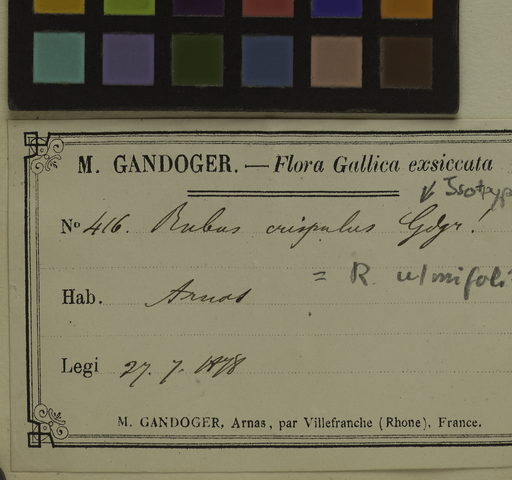 M. GANDOGER. — Flora Gallica exsiccata
↓ Isotyp
Nº 416. Rubus crispulus Gdgr.!
= R. ulmifoli
Hab. Arnas
Legi 27. 7. 1878
M. GANDOGER, Arnas, par Villefranche (Rhone), France.